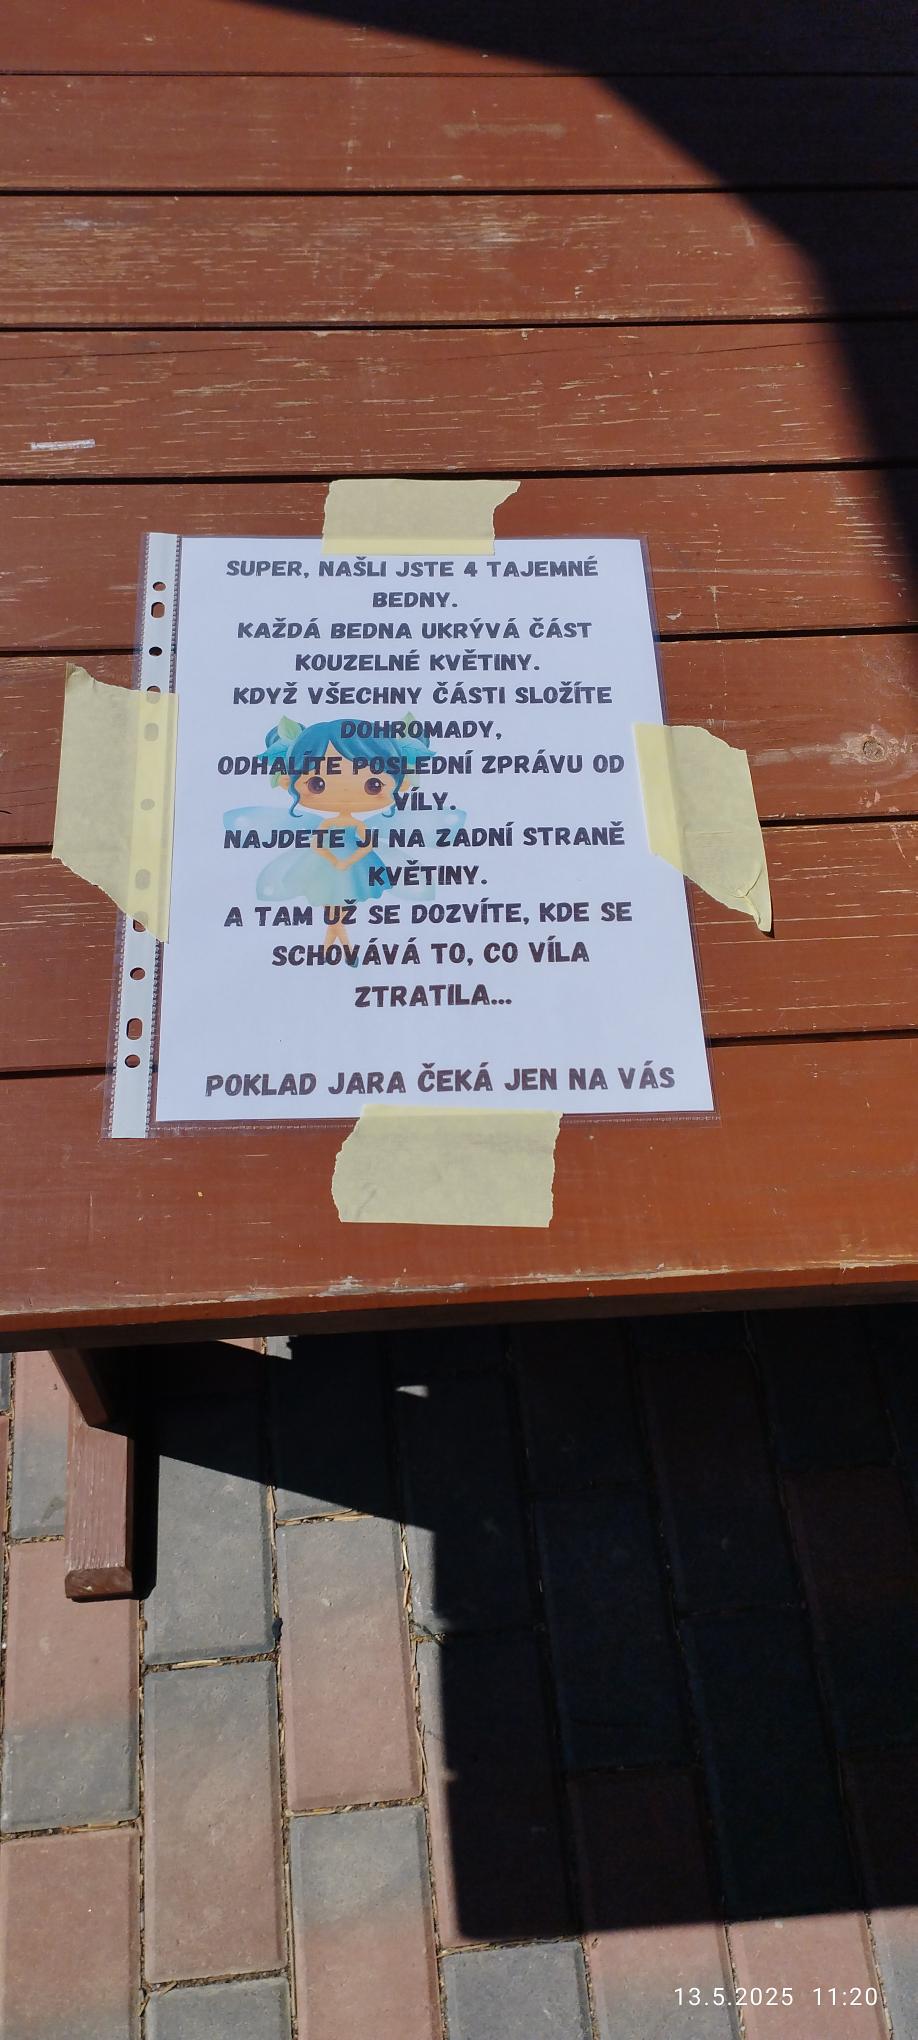 SUPER, NAŠLI JSTE 4 TAJEMNÉ
BEDNY.
KAŽDÁ BEDNA UKRÝVÁ ČÁST
KOUZELNÉ KVĚTINY.
KDYŽ VŠECHNY ČÁSTI SLOŽÍTE
DOHROMADY,
ODHALÍTE POSLEDNÍ ZPRÁVU OD
VÍLY.
NAJDETE JI NA ZADNÍ STRANĚ
KVĚTINY.
A TAM UŽ SE DOZVÍTE, KDE SE
SCHOVÁVÁ TO, CO VÍLA
ZTRATILA...
POKLAD JARA ČEKÁ JEN NA VÁS
13.5.2025 11:20